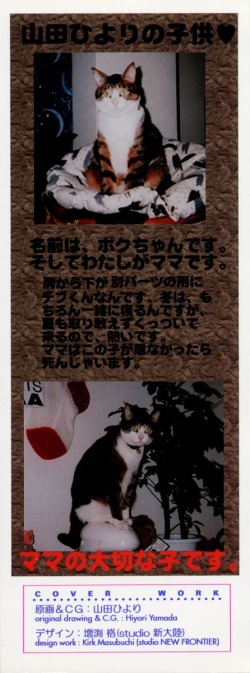 山田ひよりの子供♥
名前は、ボクちゃんです。
そしてわたしがママです。
肩から下が別パーツの用に
デブくんなんです。冬は、も
ちろん一緒に寝るんですが、
夏も取り敢えずくっついて
来るので、熱いです。
ママはこの子が居なかったら
死んじゃいます。
ママの大切な子です。
COVER WORK
原画＆CG：山田ひより
original drawing & C.G. : Hiyori Yamada
デザイン：増渕 格(studio 新大陸)
design work : Kirk Masubuchi (studio NEW FRONTIER)